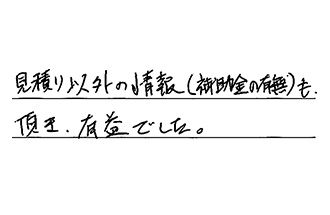 見積り以外の情報(補助金の有無)も、
頂き、有益でした。